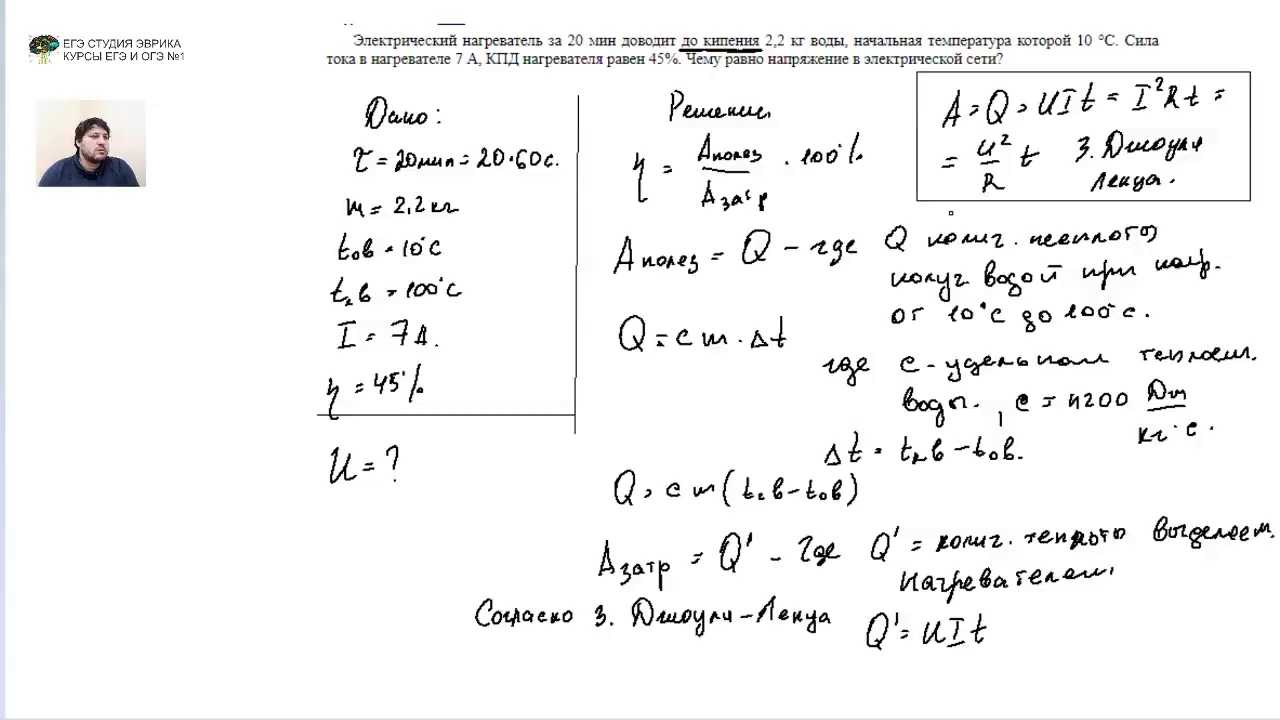 ЕГЭ СТУДИЯ ЭВРИКА
КУРСЫ ЕГЭ И ОГЭ №1
Электрический нагреватель за 20 мин доводит до кипения 2,2 кг воды, начальная температура которой 10 °C. Сила
тока в нагревателе 7 А, КПД нагревателя равен 45%. Чему равно напряжение в электрической сети?
Дано:
τ = 20мин = 20·60с.
m = 2,2кг
t₀в = 10°C
t₂в = 100°C
I = 7А.
η = 45%
U = ?
Решение.
η = Aполез / Aзатр · 100%
A = Q = UIt = I²Rt =
= U²/R t З. Джоуля
Ленца.
Aполез = Q – где Q колич. теплоты
получ водой при нагр.
от 10°C до 100°C.
Q = cm·Δt
где c – удельная теплоем.
воды, c = 4200 Дж/кг·°C.
Δt = t₂в – t₀в.
Q = cm(t₂в – t₀в)
Aзатр = Q' – где Q' = колич. теплоты выделяем.
нагревателем.
Согласно З. Джоуля–Ленца Q' = UIt